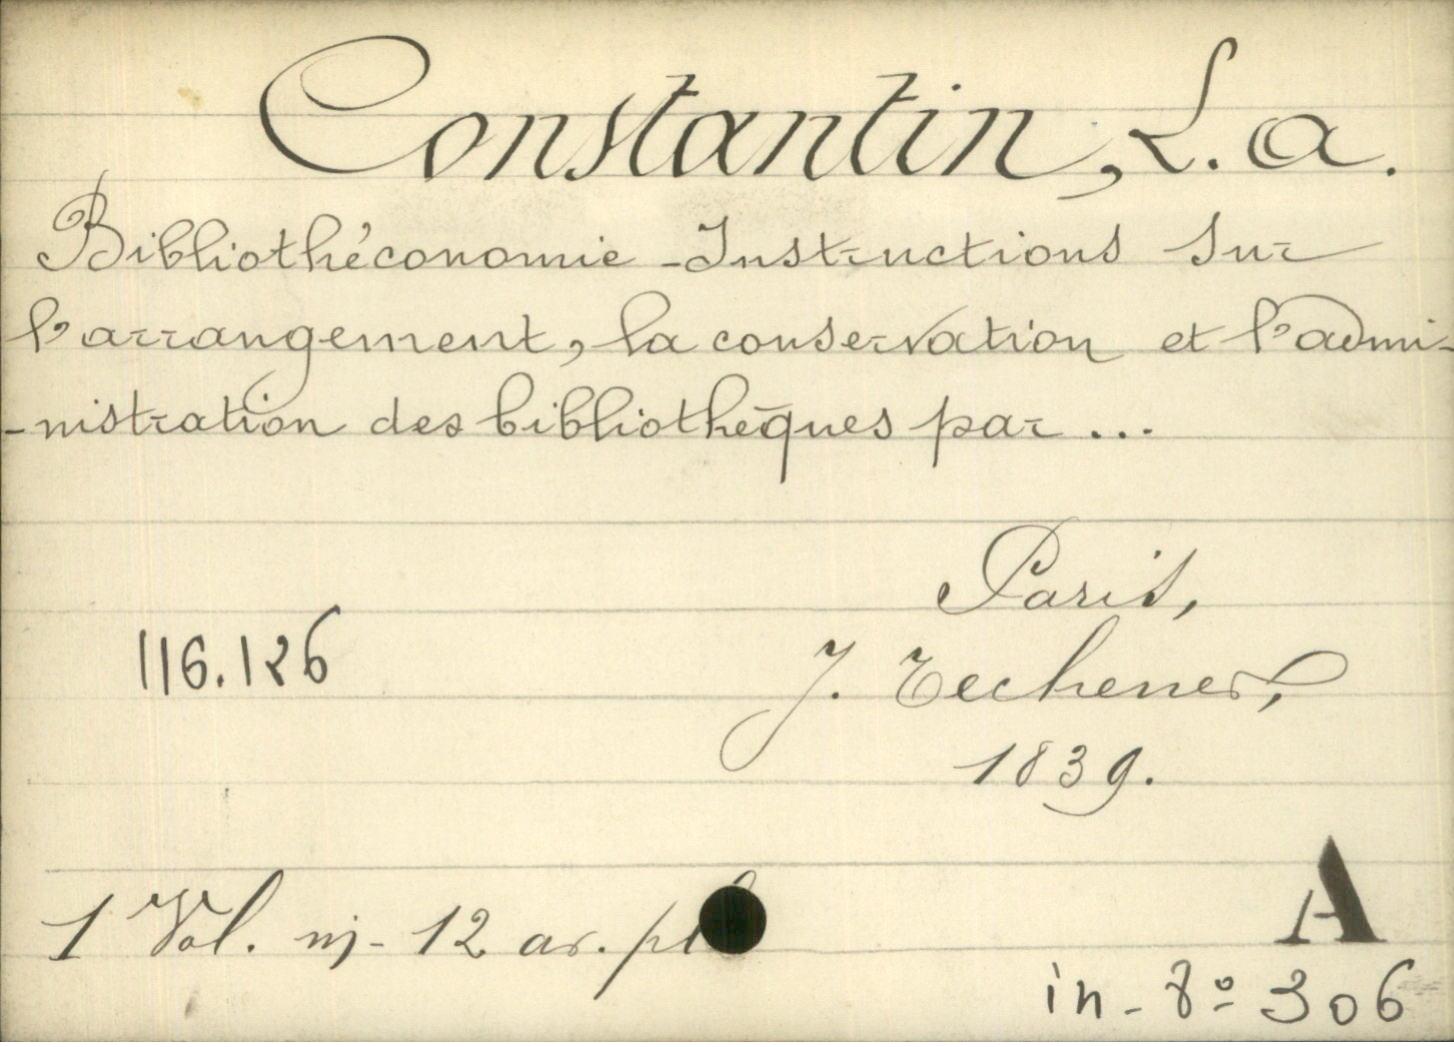 Constantin, L. a.
Bibliothéconomie - Instructions sur
l'arrangement, la conservation et l'admi-
-nistration des bibliothèques par ...
Paris,
116.126
J. Techener,
1839.
1 Vol. in-12 av. pl
A
in-8º 306